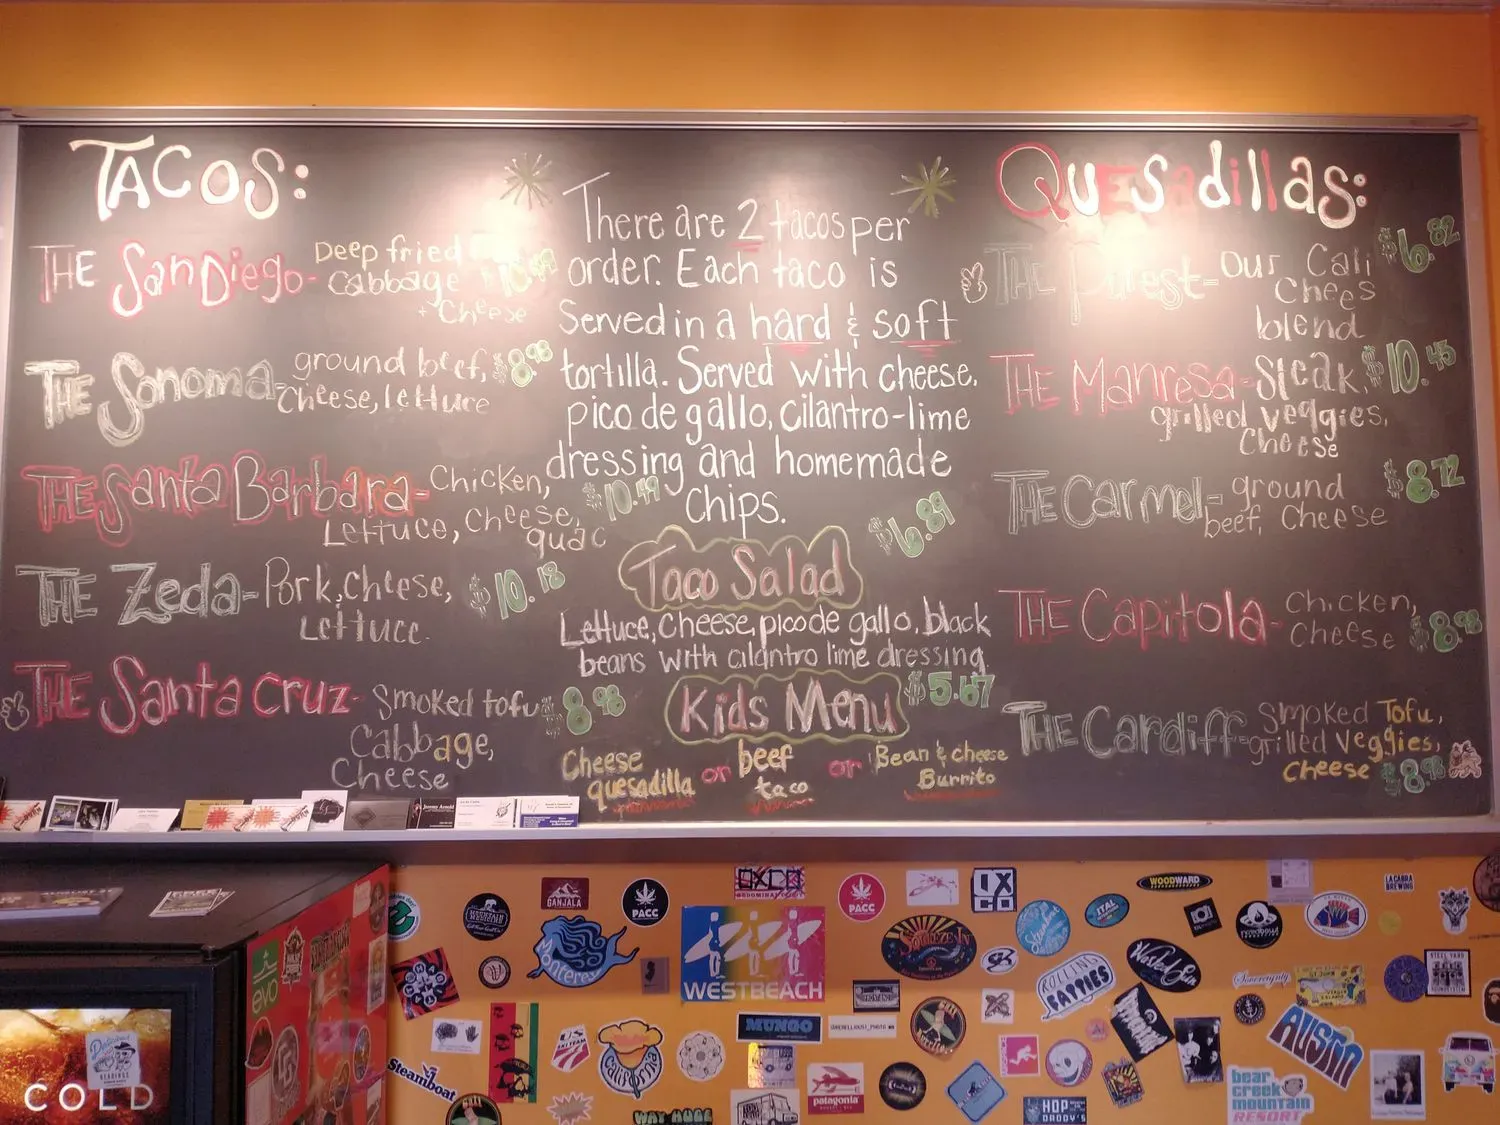 TACOS:
THE San Diego- Deep fried
Cabbage
+ Cheese
THE Sonoma- ground beef, $8.98
cheese, lettuce
THE Santa Barbara- Chicken, $10.49
Lettuce, Cheese,
guac
THE Zeda- Pork, cheese, $10.18
Lettuce
THE Santa Cruz- Smoked tofu $8.98
Cabbage,
Cheese
There are 2 tacos per
order. Each taco is
Served in a hard & soft
tortilla. Served with cheese,
pico de gallo, cilantro-lime
dressing and homemade
chips.
Taco Salad $6.89
Lettuce, Cheese, pico de gallo, black
beans with cilantro lime dressing
Kids Menu $5.67
Cheese
quesadilla
or
beef
taco
or
Bean & cheese
Burrito
Quesadillas:
THE Purest- Our Cali $6.82
Chees
blend
THE Manresa- Steak, $10.45
grilled veggies,
Cheese
THE Carmel- ground $8.72
beef, Cheese
THE Capitola- Chicken, $8.98
Cheese
THE Cardiff- Smoked Tofu,
grilled Veggies,
Cheese $8.98
COLD
evo
GANJALA
PACC
OXCO
PACC
OXCO
WOODWARD
LA CABRA
BREWING
Monterey
WESTBEACH
SQUEEZE IN
ITAL
ROLLING
FATTIES
Sovereignty
STEEL YARD
MUNGO
Steamboat
California
patagonia
HOP
DADDY'S
AUSTIN
bear
creek
mountain
RESORT
WAY HUGE